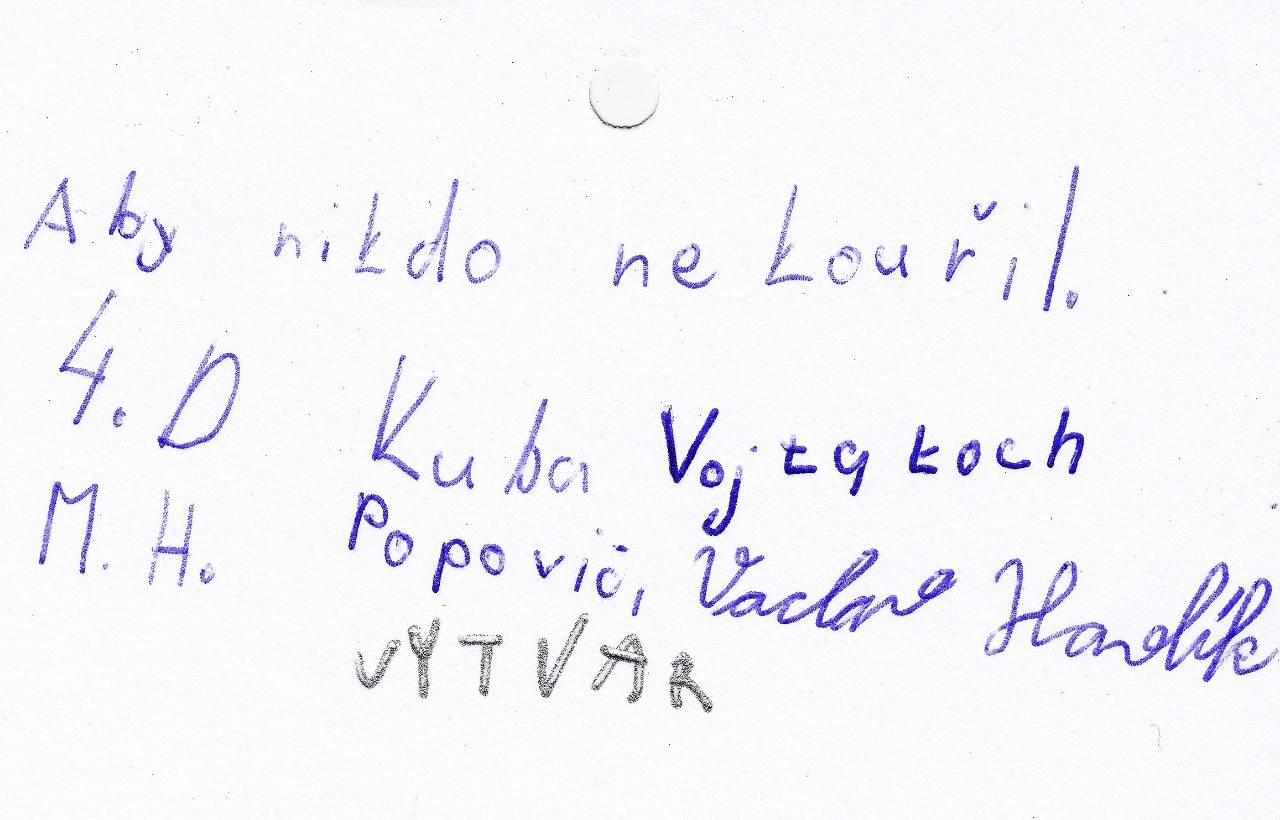 Aby nikdo nekouřil.
4. D Kuba Vojta Koch
M. H. Popovič, Vaclav Havdík
VYTVAR